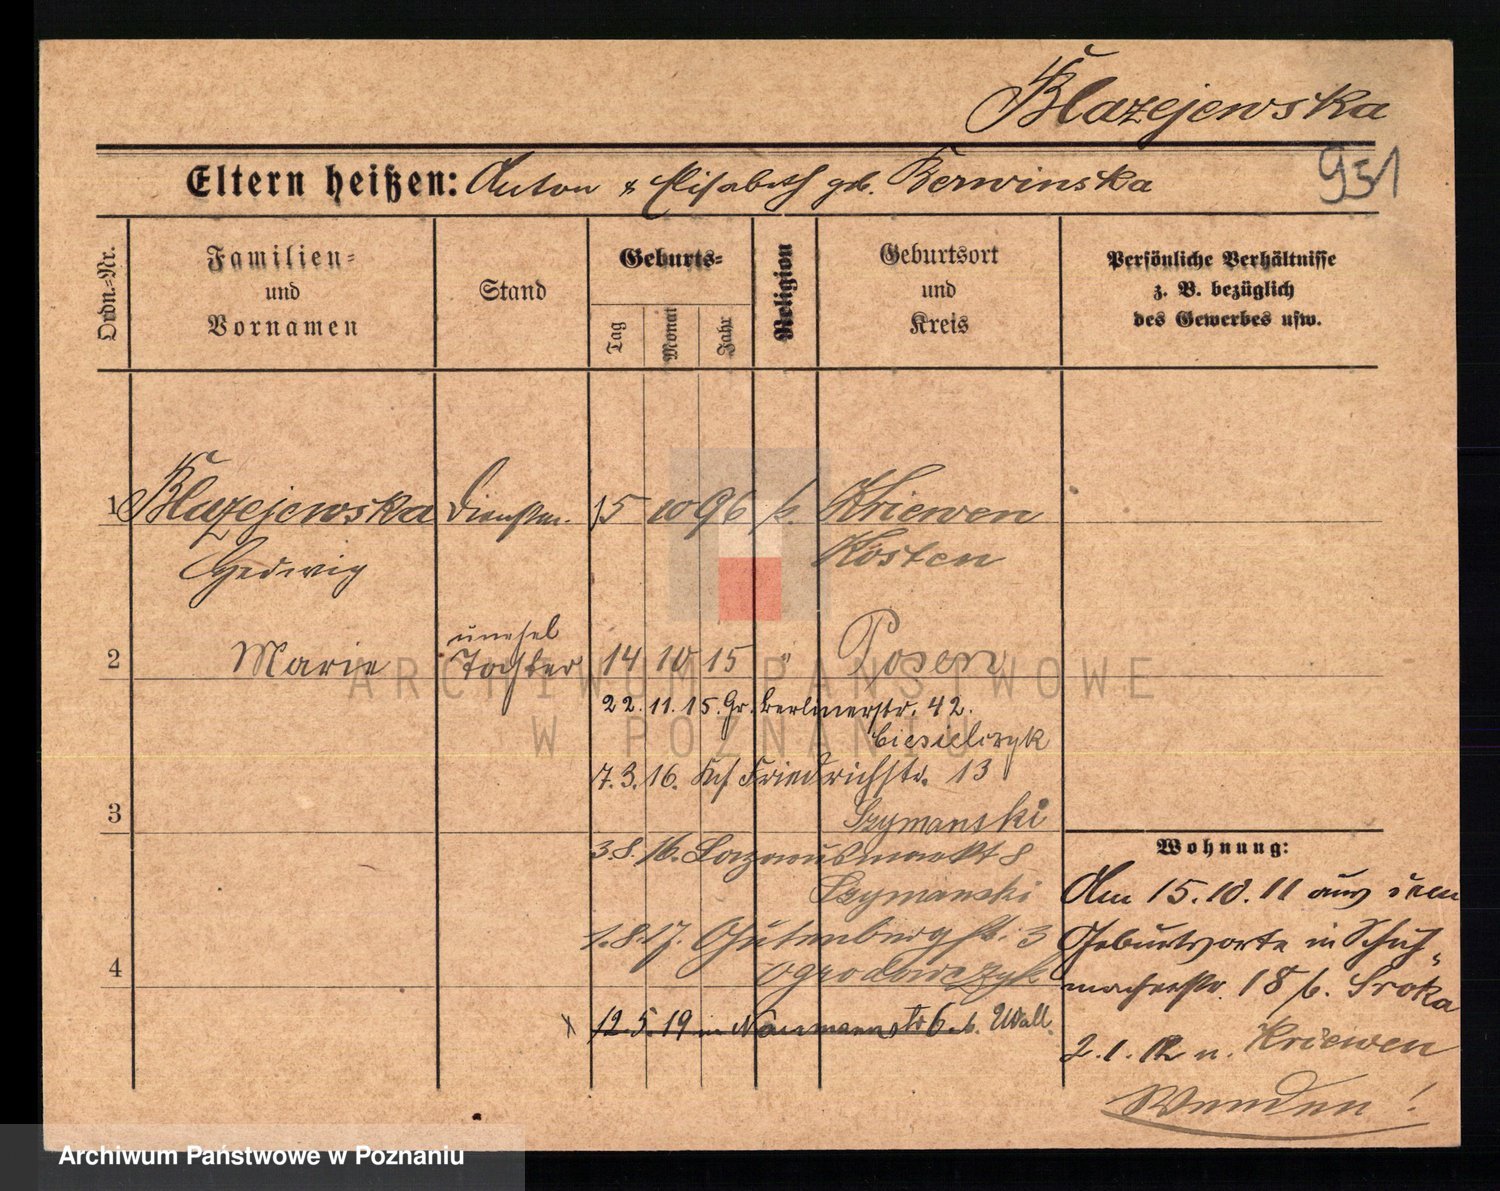 Blazejewska
951
Eltern heißen: Anton & Elisabeth geb. Berwinska
Ordn.-Nr.
Familien-
und
Vornamen
Stand
Geburts-
Tag
Monat
Jahr
Religion
Geburtsort
und
Kreis
Persönliche Verhältnisse
z. B. bezüglich
des Gewerbes usw.
1 Blazejewska Dienstm. 15 10 96 k. Kriewen
Hedwig Kosten
unehel
2 Marie Tochter 14 10 15 " Posen
22.11.15. Gr. Berlinerstr. 42.
Ciesielczyk
7.3.16. Friedrichstr. 13
3 Szymanski
3.8.16. Lazarusmarkt 8
Szymanski
1.8.17. Gutenbergstr. 3
4 Ogrodowczyk
x 12.5.19 in Naumannstr 6 b. Wall.
Wohnung:
Am 15.10.11 aus dem
Geburtsorte in Schuh-
macherstr. 18 b. Sroka
2.1.12 n. Kriewen
Wenden!
ARCHIWUM PAŃSTWOWE
W POZNANIU
Archiwum Państwowe w Poznaniu